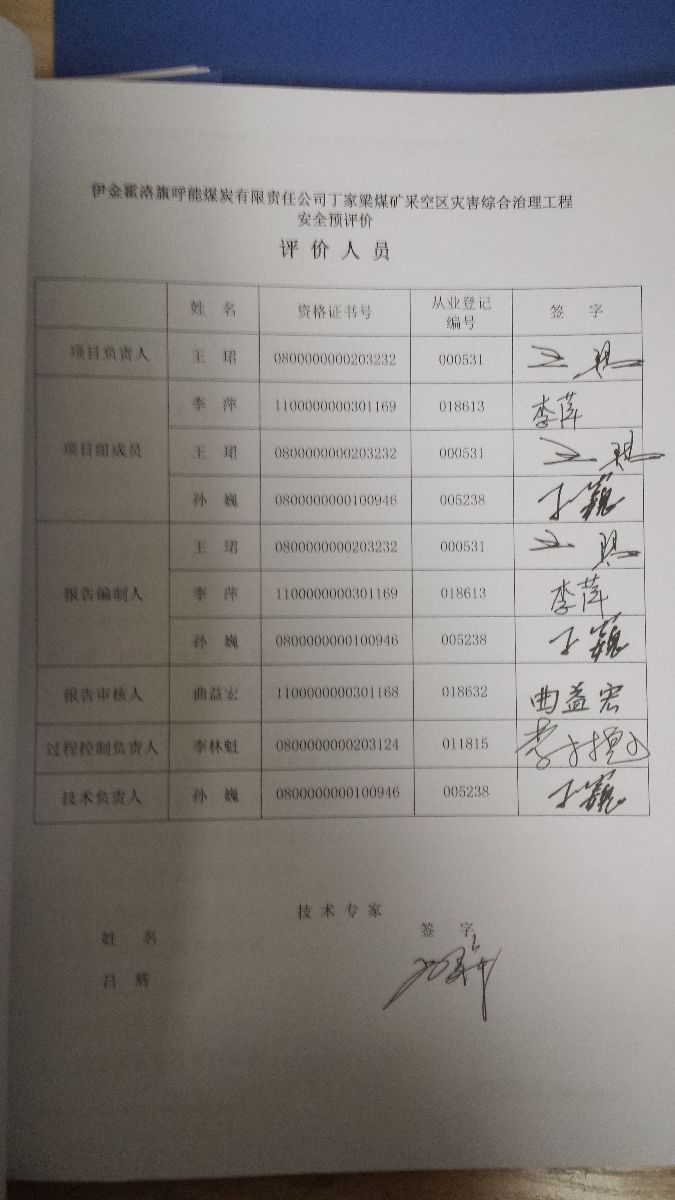 伊金霍洛旗呼能煤炭有限责任公司丁家梁煤矿采空区灾害综合治理工程
安全预评价
评价人员
姓 名 资格证书号 从业登记编号 签 字
项目负责人 王 珺 0800000000203232 000531 王珺
项目组成员 李 萍 1100000000301169 018613 李萍
王 珺 0800000000203232 000531 王珺
孙 巍 0800000000100946 005238 孙巍
报告编制人 王 珺 0800000000203232 000531 王珺
李 萍 1100000000301169 018613 李萍
孙 巍 0800000000100946 005238 孙巍
报告审核人 曲益宏 1100000000301168 018632 曲益宏
过程控制负责人 李林魁 0800000000203124 011815 李林魁
技术负责人 孙 巍 0800000000100946 005238 孙巍
技术专家
姓 名 签 字
吕 辉